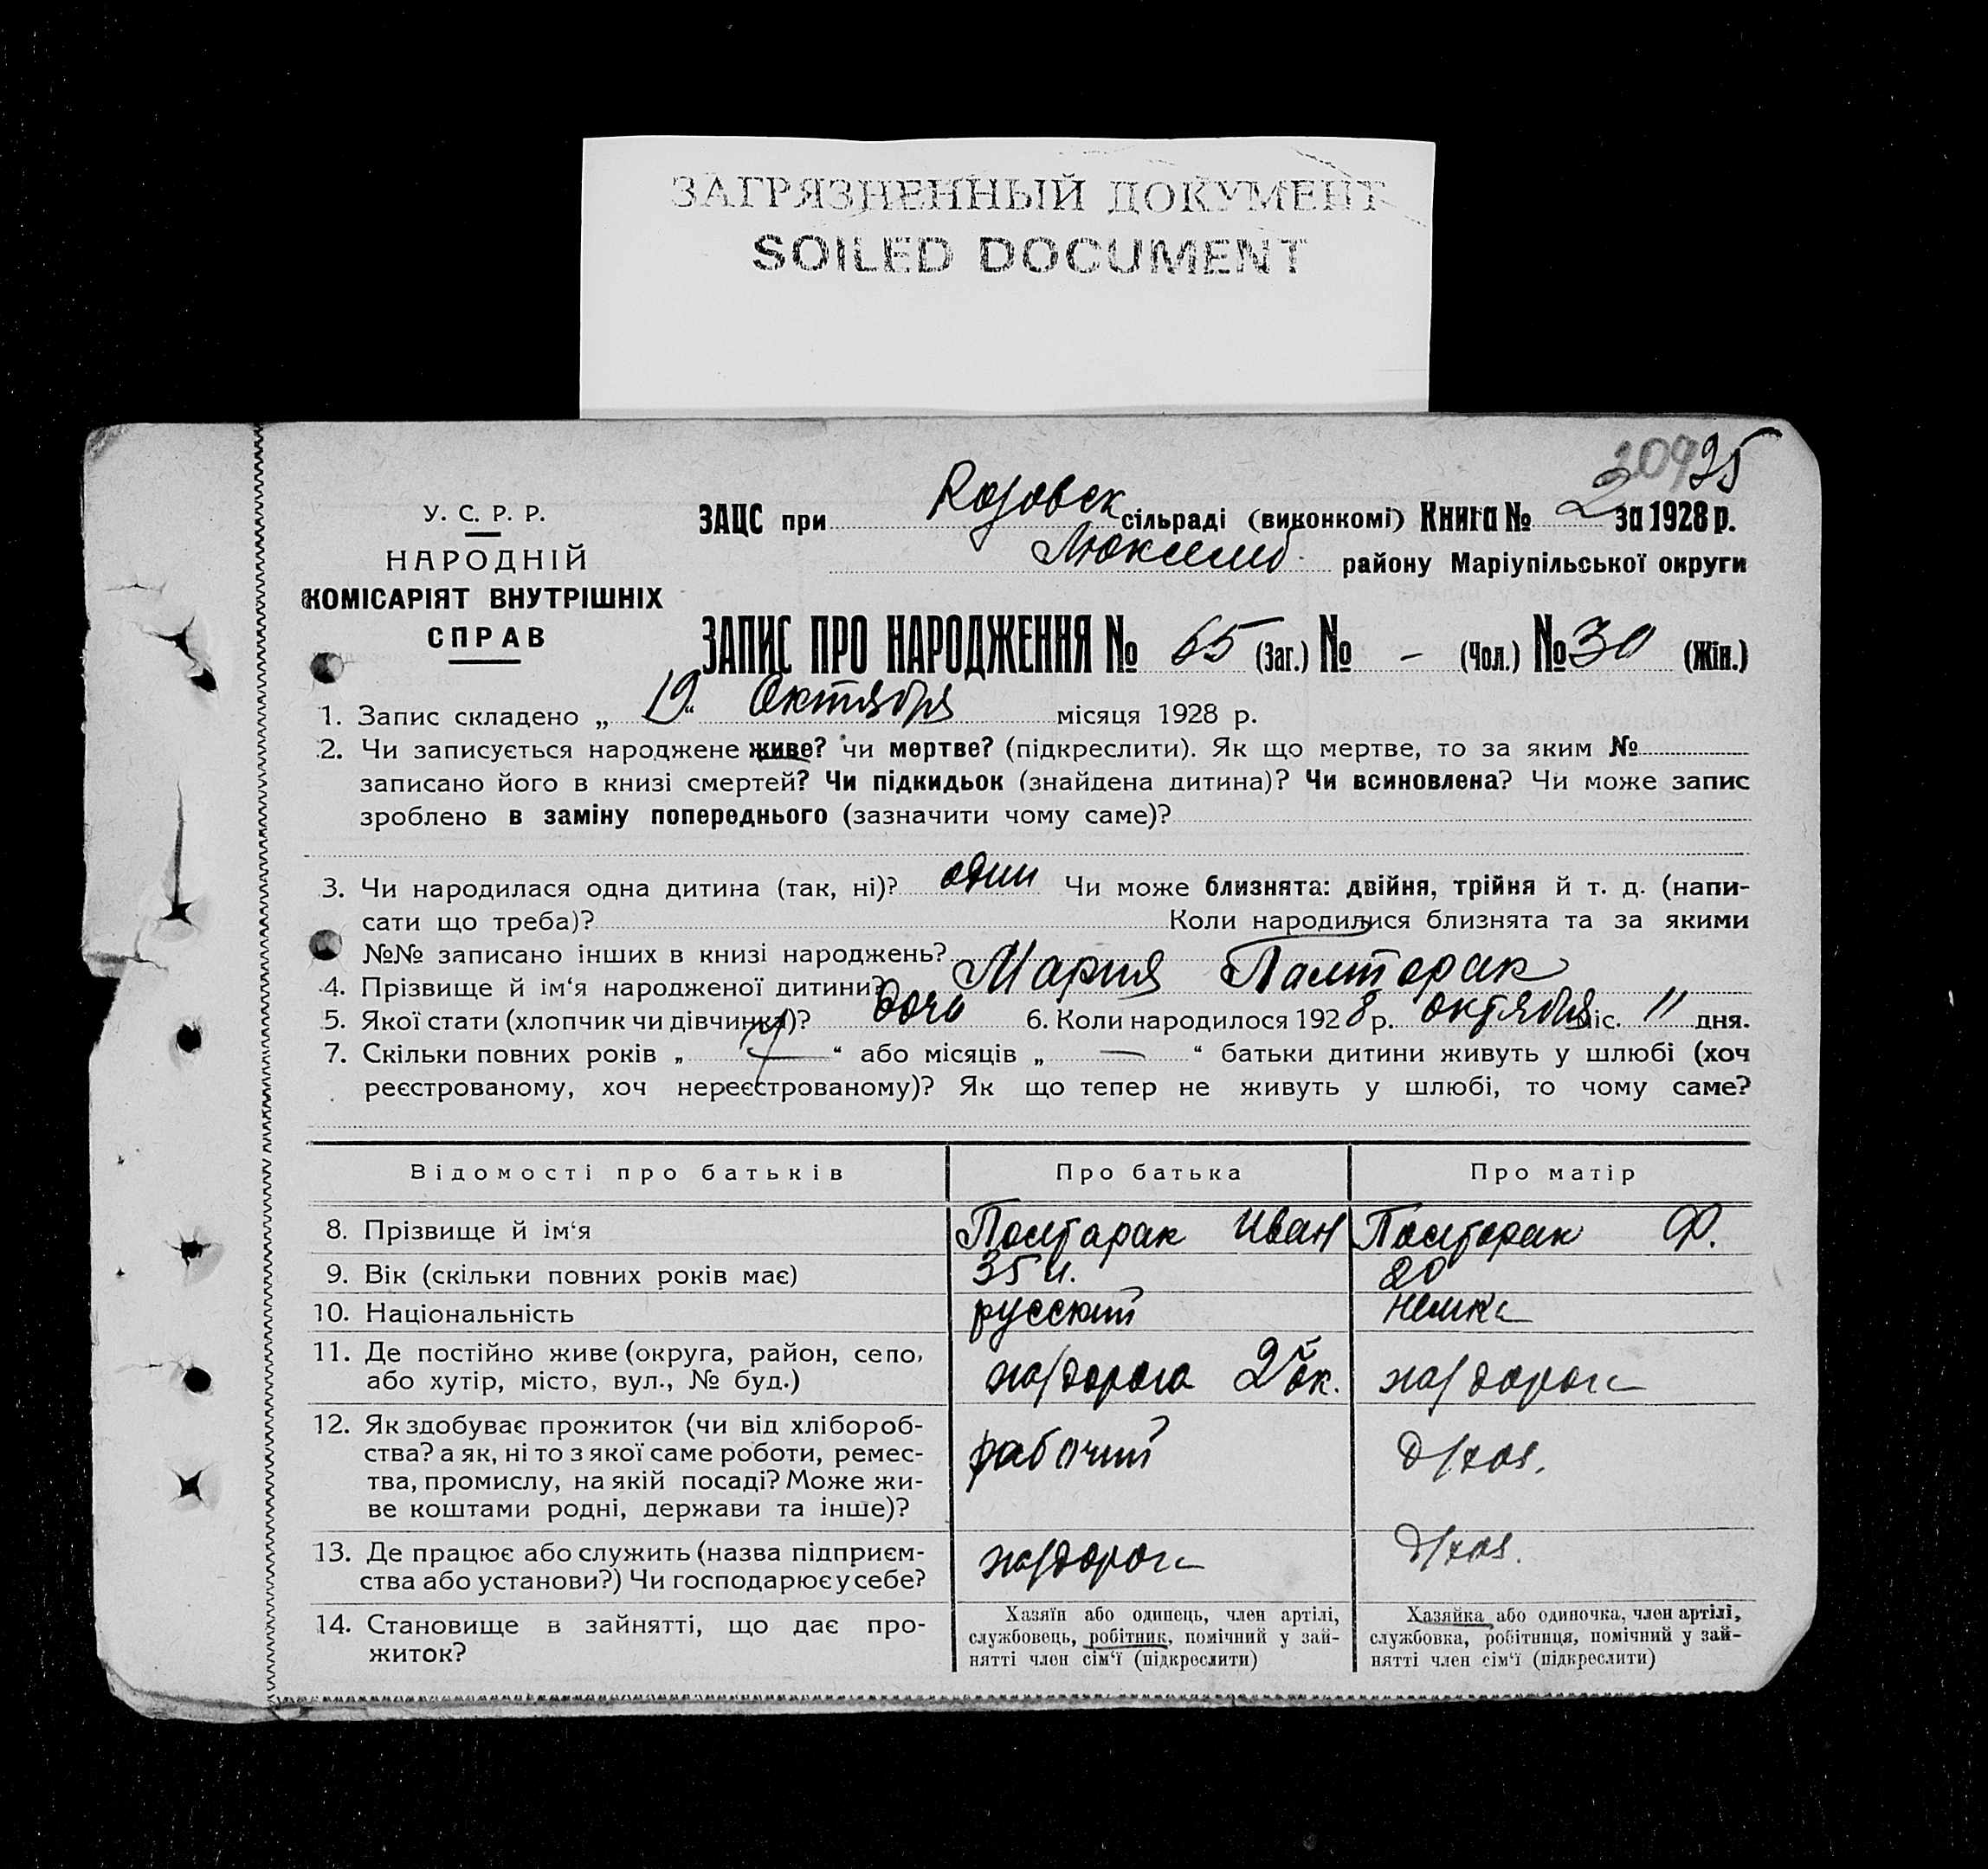 ЗАГРЯЗНЕННЫЙ ДОКУМЕНТ
SOILED DOCUMENT
95
У. С. Р. Р.
НАРОДНІЙ
КОМІСАРІЯТ ВНУТРІШНІХ
СПРАВ
ЗАЦС при Розовск сільраді (виконкомі) Книга № 2 за 1928 р.
Люксемб. району Маріупільської округи
ЗАПИС ПРО НАРОДЖЕННЯ № 65 (Заг.) № - (Чол.) № 30 (Жін.)
1. Запис складено „ 19 “ Октября місяця 1928 р.
2. Чи записується народжене живе? чи мертве? (підкреслити). Як що мертве, то за яким №
записано його в книзі смертей? Чи підкидьок (знайдена дитина)? Чи всиновлена? Чи може запис
зроблено в заміну попереднього (зазначити чому саме)?
3. Чи народилася одна дитина (так, ні)? один Чи може близнята: двійня, трійня й т. д. (напи-
сати що треба)? Коли народилися близнята та за якими
№№ записано інших в книзі народжень?
4. Прізвище й ім‘я народженої дитини? Мария Палторак
5. Якої стати (хлопчик чи дівчинка)? дочь 6. Коли народилося 1928 р. октября міс. 11 дня.
7. Скільки повних років „ “ або місяців „ — “ батьки дитини живуть у шлюбі (хоч
реєстрованому, хоч нереєстрованому)? Як що тепер не живуть у шлюбі, то чому саме?
Відомості про батьків Про батька Про матір
8. Прізвище й ім‘я Полтарак Иван Полторак Ф.
9. Вік (скільки повних років має) 35 л. 20
10. Національність русский немка
11. Де постійно живе (округа, район, село,
або хутір, місто, вул., № буд.) жел/дорога 2й ок. жел/дорога
12. Як здобуває прожиток (чи від хлібороб-
ства? а як, ні то з якої саме роботи, ремес-
тва, промислу, на якій посаді? Може жи-
ве коштами родні, держави та інше)?
рабочий д/хоз.
13. Де працює або служить (назва підприєм-
ства або установи?) Чи господарює у себе?
жел/дорога д/хоз.
14. Становище в зайнятті, що дає про-
житок?
Хазяїн або одинець, член артілі,
службовець, робітник, помічний у зай-
нятті член сім‘ї (підкреслити)
Хазяйка або одиночка, член артілі,
службовка, робітниця, помічний у зай-
нятті член сім‘ї (підкреслити)